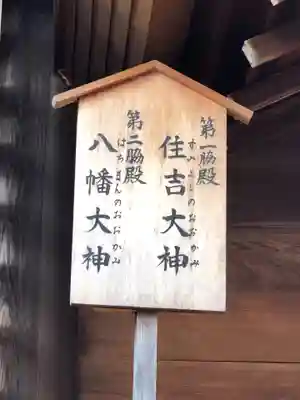 第一脇殿
住吉大神
すみよしのおおかみ
第二脇殿
八幡大神
はちまんのおおかみ